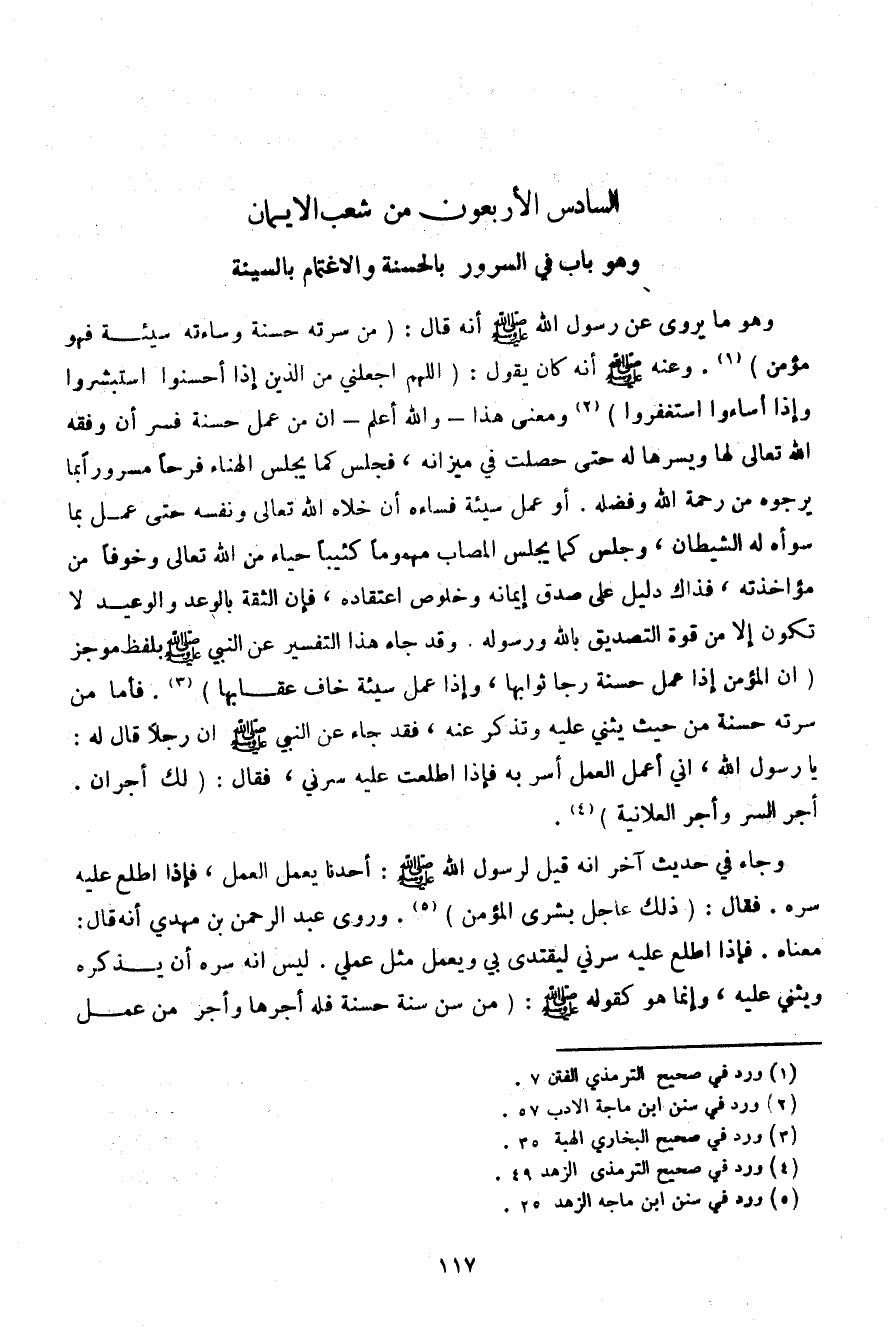 السادس الأربعون من شعب الايمان
وهو باب في السرور بالحسنة والاغتمام بالسيئة
وهو ما يروى عن رسول الله ﷺ أنه قال : ( من سرته حسنة وساءته سيئة فهو
مؤمن ) (١) . وعنه ﷺ أنه كان يقول : ( اللهم اجعلني من الذين إذا أحسنوا استبشروا
وإذا أساءوا استغفروا ) (٢) ومعنى هذا – والله أعلم – ان من عمل حسنة فسر أن وفقه
الله تعالى لها ويسرها له حتى حصلت في ميزانه ، فجلس كما يجلس الهناء فرحاً مسروراً بما
يرجوه من رحمة الله وفضله . أو عمل سيئة فساءه أن خلاه الله تعالى ونفسه حتى عمل بما
سوأه له الشيطان ، وجلس كما يجلس المصاب مهموماً كئيباً حياء من الله تعالى وخوفاً من
مؤاخذته ، فذاك دليل على صدق إيمانه وخلوص اعتقاده ، فإن الثقة بالوعد والوعيد لا
تكون إلا من قوة التصديق بالله ورسوله . وقد جاء هذا التفسير عن النبي ﷺ بلفظ موجز
( ان المؤمن إذا عمل حسنة رجا ثوابها ، وإذا عمل سيئة خاف عقابها ) (٣) . فأما من
سرته حسنة من حيث يثني عليه وتذكر عنه ، فقد جاء عن النبي ﷺ ان رجلاً قال له :
يا رسول الله ، اني أعمل العمل أسر به فإذا اطلعت عليه سرني ، فقال : ( لك أجران .
أجر السر وأجر العلانية ) (٤) .
وجاء في حديث آخر انه قيل لرسول الله ﷺ : أحدنا يعمل العمل ، فإذا اطلع عليه
سره . فقال : ( ذلك عاجل بشرى المؤمن ) (٥) . وروى عبد الرحمن بن مهدي أنه قال :
معناه . فإذا اطلع عليه سرني ليقتدى بي ويعمل مثل عملي . ليس انه سره أن يذكره
ويثني عليه ، وإنما هو كقوله ﷺ : ( من سن سنة حسنة فله أجرها وأجر من عمل
(١) ورد في صحيح الترمذي الفتن ٧ .
(٢) ورد في سنن ابن ماجة الادب ٥٧ .
(٣) ورد في صحيح البخاري الهبة ٣٥ .
(٤) ورد في صحيح الترمذى الزهد ٤٩ .
(٥) ورد في سنن ابن ماجه الزهد ٢٥ .
١١٧